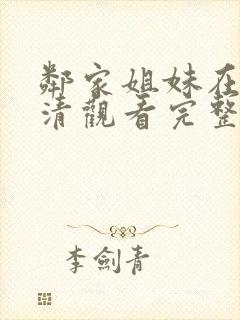 鄰家姐妹在
清觀看完整
李劍青